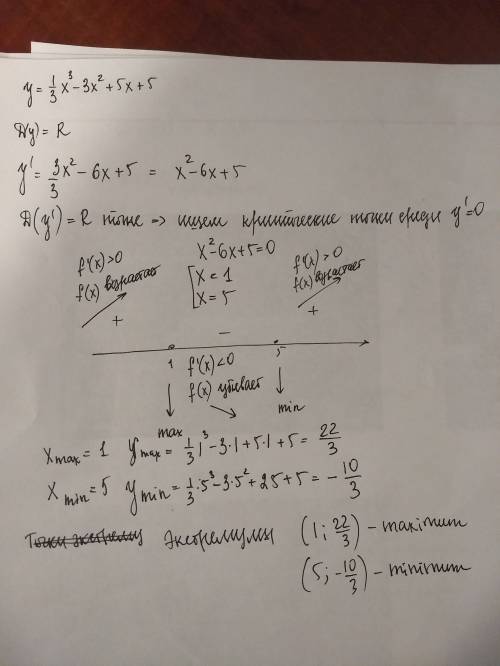 y = 1/3 x³ - 3x² + 5x + 5
D(y) = R
y' = 3x²/3 - 6x + 5 = x² - 6x + 5
D(y') = R тоже => ищем критические точки среди y'=0
x² - 6x + 5 = 0
[ x = 1
x = 5
f'(x) > 0
f(x) возрастает
+
f'(x) > 0
f(x) возрастает
+
−
1 5
f'(x) < 0
f(x) убывает
max
min
x max = 1 y max = 1/3 · 1³ - 3·1 + 5·1 + 5 = 22/3
x min = 5 y min = 1/3 · 5³ - 3·5² + 25 + 5 = - 10/3
Экстремумы (1; 22/3) - maximum
(5; -10/3) - minimum